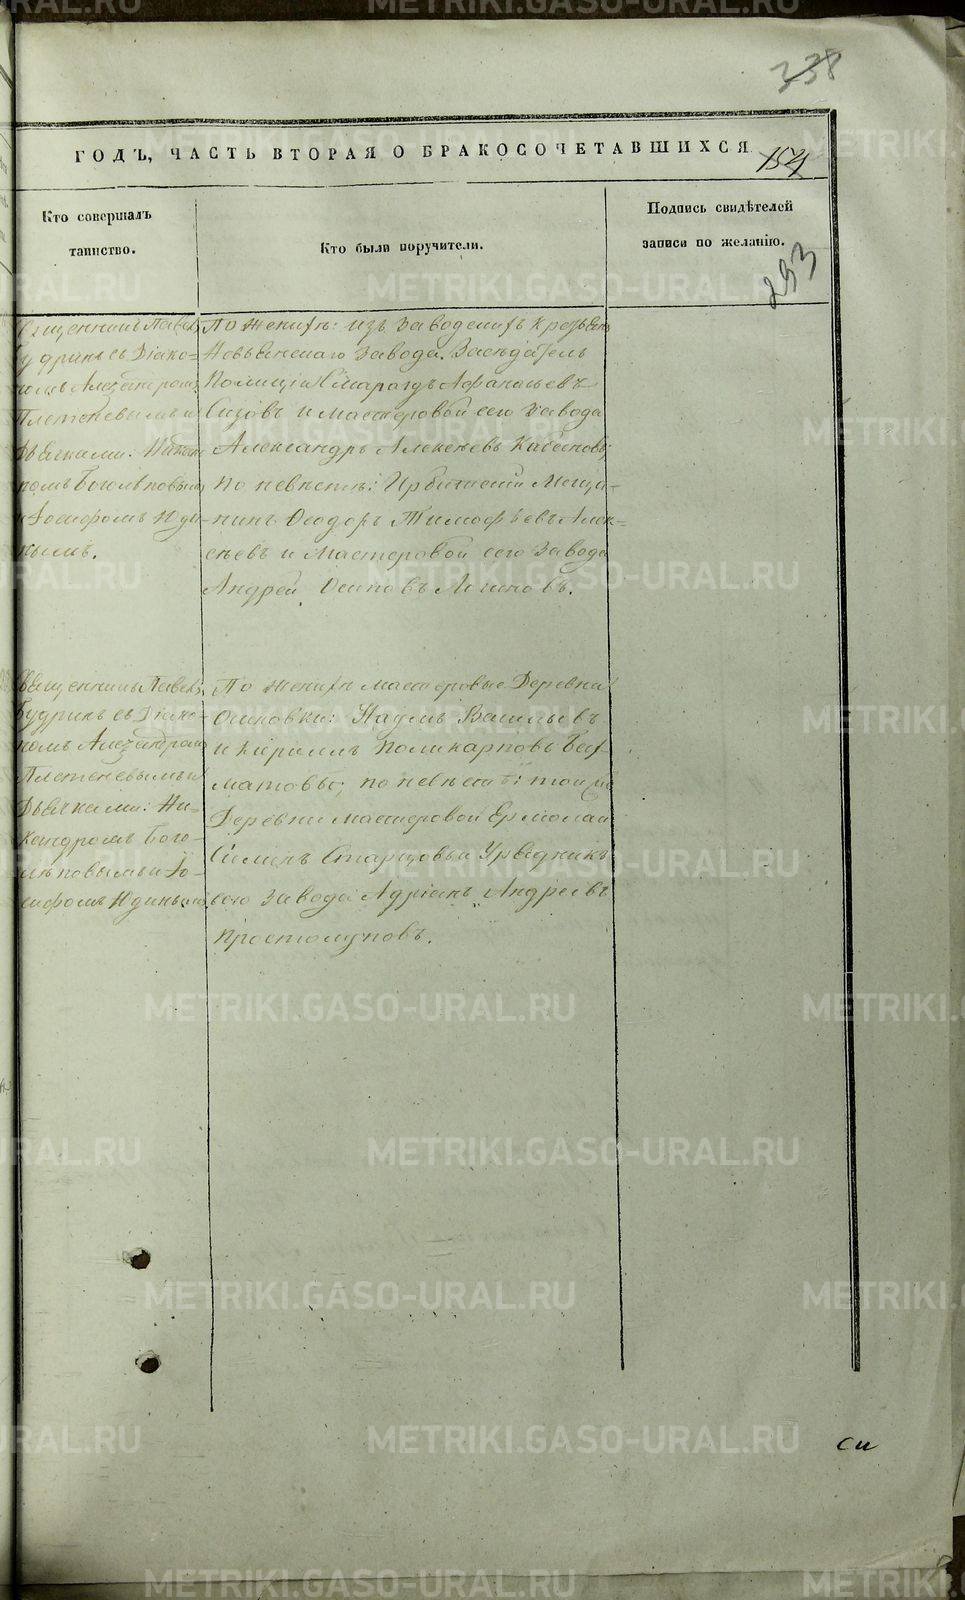 338
ГОДЪ, ЧАСТЬ ВТОРАЯ О БРАКОСОЧЕТАВШИХСЯ
154
Кто совершалъ
таинство.
Кто были поручители.
Подпись свидѣтелей
записи по желанію.
253
Священникъ Павелъ
Будринъ съ Діако-
номъ Александромъ
Плетеневымъ и
Дьячками:
номъ Боголѣповымъ
и Іосифомъ Юди-
нымъ.
По женихѣ: изъ Заводскихъ
Невьянскаго Завода. Засѣдатель
Полиціи Смарагдъ Афанасьевъ
Сизовъ и Мастеровой сего Завода
Александръ Алексѣевъ
по невѣстѣ: Ирбитскій Мѣща-
нинъ Ѳеодоръ Тимофѣевъ Алек-
сѣевъ и Мастеровой сего Завода
Андрей Осиповъ Логиновъ.
Священникъ Павелъ
Будринъ съ Діако-
номъ Александромъ
Плетеневымъ и
Дьячками: Ни-
кандромъ Бого-
лѣповымъ и Іо-
сифомъ Юдинымъ
По женихѣ мастеровые Деревни
Осиновки: Наумъ Васильевъ
и Кириллъ Поликарповъ
по невѣстѣ: той же
Деревни мастеровой Ермолай
Силинъ Старцовъ и Урядникъ
сего Завода Адріанъ Андреевъ
Простолуповъ.
Си
METRIKI.GASO-URAL.RU